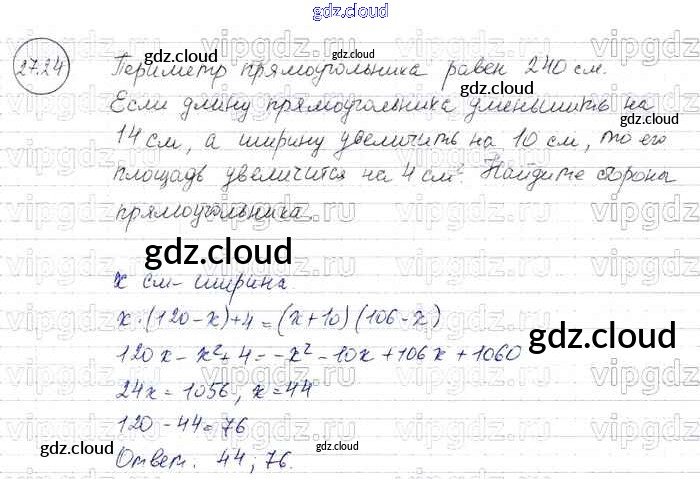 gdz.cloud
27.24
Периметр прямоугольника равен 240 см.
Если длину прямоугольника уменьшить на
14 см, а ширину увеличить на 10 см, то его
площадь увеличится на 4 см². Найдите стороны
прямоугольника.
gdz.cloud
x см - ширина.
x·(120-x)+4=(x+10)(106-x)
120x-x²+4=-x²-10x+106x+1060
24x=1056, x=44
120-44=76
Ответ: 44; 76.